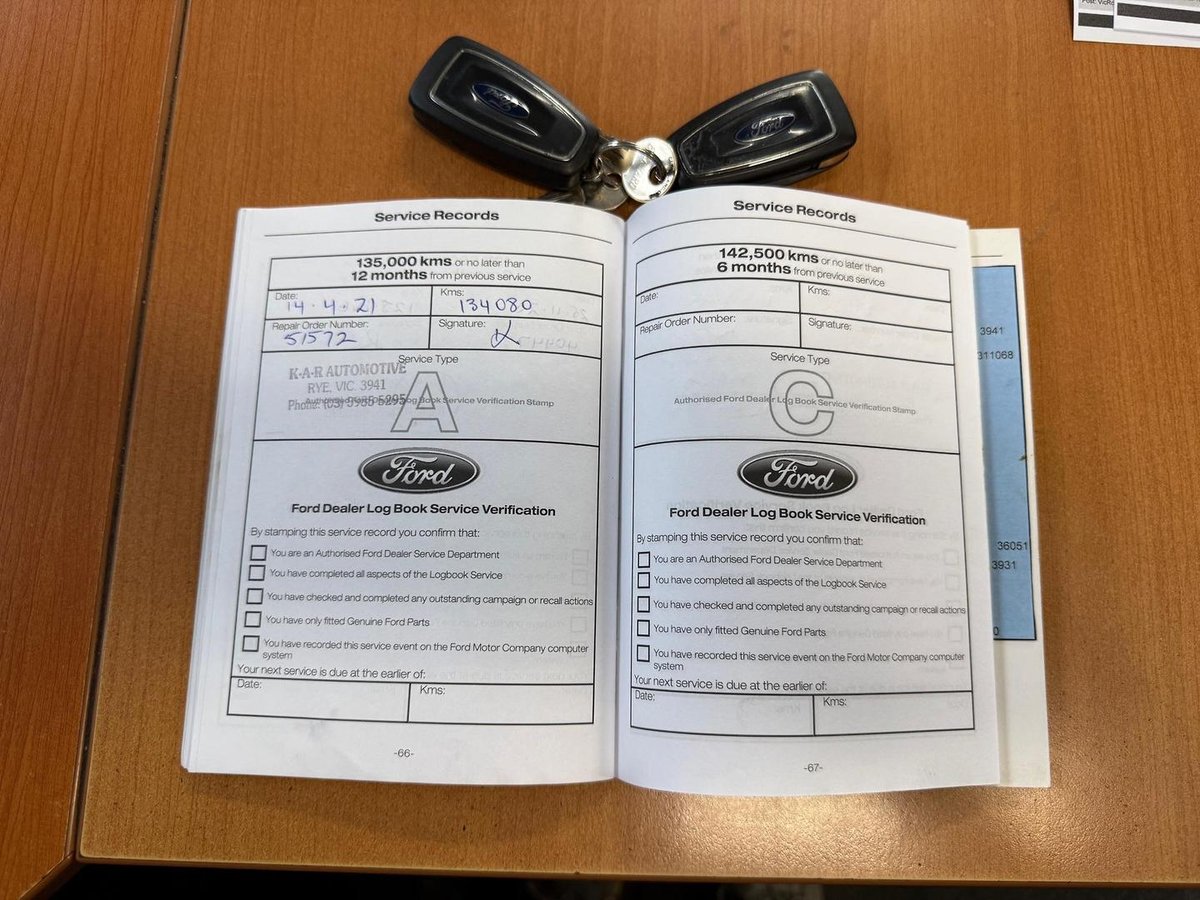 Post: VicRo
Ford
Ford
Service Records
135,000 kms or no later than
12 months from previous service
Date: 14·4·21
Kms: 134080
Repair Order Number: 51572
Signature:
Service Type
A
K·A·R AUTOMOTIVE
RYE, VIC. 3941
Phone: (03) 5985 5295
Authorised Ford Dealer Log Book Service Verification Stamp
Ford
Ford Dealer Log Book Service Verification
By stamping this service record you confirm that:
You are an Authorised Ford Dealer Service Department
You have completed all aspects of the Logbook Service
You have checked and completed any outstanding campaign or recall actions
You have only fitted Genuine Ford Parts
You have recorded this service event on the Ford Motor Company computer
system
Your next service is due at the earlier of:
Date:
Kms:
-66-
Service Records
142,500 kms or no later than
6 months from previous service
Date:
Kms:
Repair Order Number:
Signature:
Service Type
C
Authorised Ford Dealer Log Book Service Verification Stamp
Ford
Ford Dealer Log Book Service Verification
By stamping this service record you confirm that:
You are an Authorised Ford Dealer Service Department
You have completed all aspects of the Logbook Service
You have checked and completed any outstanding campaign or recall actions
You have only fitted Genuine Ford Parts
You have recorded this service event on the Ford Motor Company computer
system
Your next service is due at the earlier of:
Date:
Kms:
-67-
3941
311068
36051
3931
0